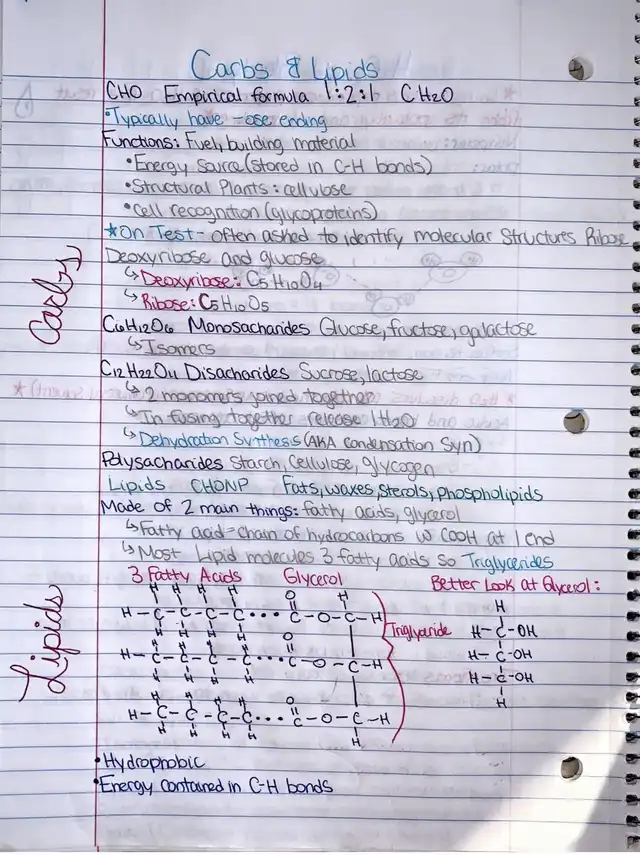 Carbs & Lipids
CHO Empirical formula 1:2:1 CH2O
•Typically have -ose ending
Functions: Fuel, building material
•Energy source (stored in C-H bonds)
•Structural Plants: cellulose
•Cell recognition (glycoproteins)
*On Test- often asked to identify molecular Structures Ribose
Deoxyribose and glucose
↳Deoxyribose: C5H10O4
↳Ribose: C5H10O5
Carbs
C6H12O6 Monosacharides Glucose, fructose, galactose
↳Isomers
C12H22O11 Disacharides Sucrose, lactose
↳2 monomers joined together
↳In fusing together release 1H2O
↳Dehydration Synthesis (AKA Condensation Syn)
Polysacharides Starch, Cellulose, glycogen
Lipids CHONP Fats, waxes, sterols, phospholipids
Made of 2 main things: fatty acids, glycerol
↳Fatty acid=chain of hydrocarbons w COOH at 1 end
↳Most Lipid molecules 3 fatty acids so Triglycerides
Lipids
3 Fatty Acids Glycerol Better Look at Glycerol:
H H H H O H H
H-C-C-C-C•••C-O-C-H Triglyceride H-C-OH
H H H H O H-C-OH
H-C-C-C-C•••C-O-C-H H-C-OH
H H H H H
H H H H O
H-C-C-C-C•••C-O-C-H
H H H H H
•Hydrophobic
•Energy contained in C-H bonds